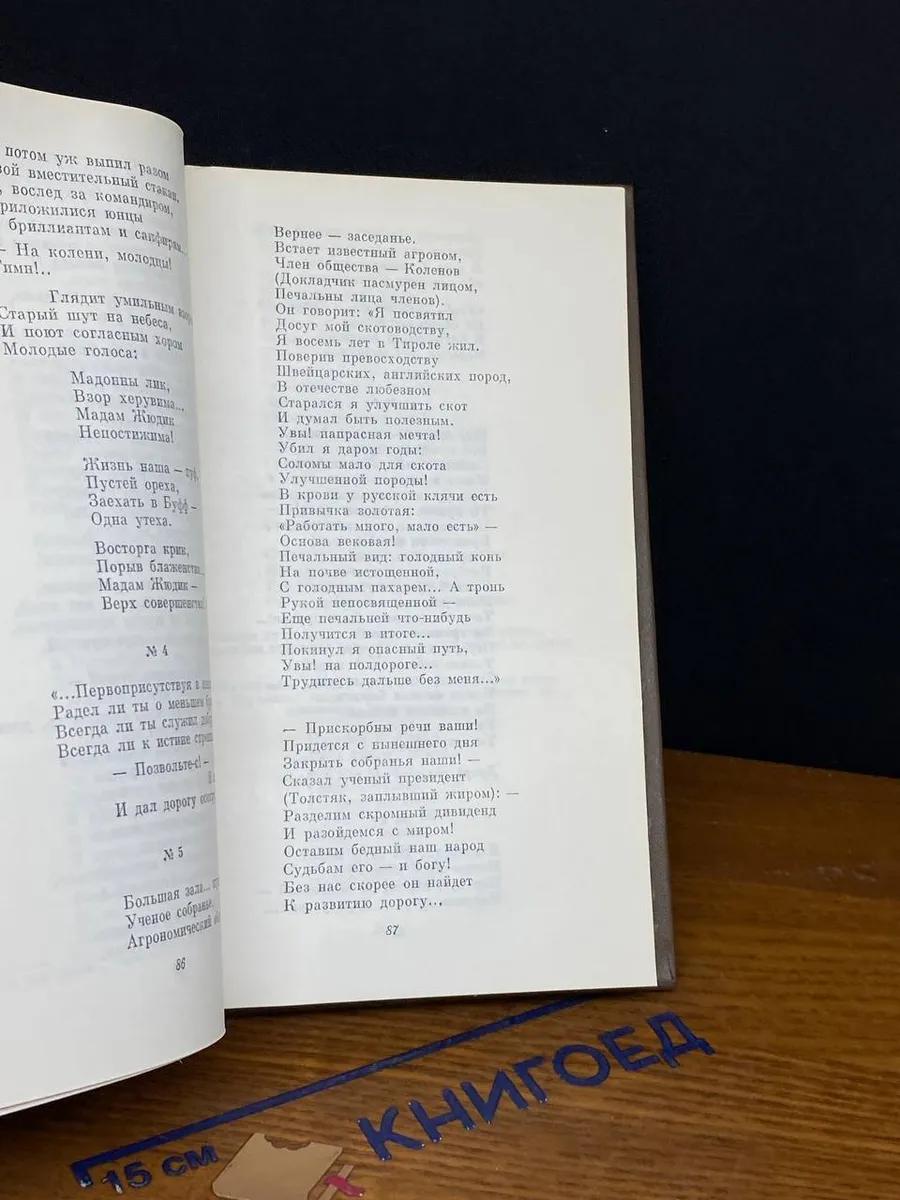 потом уж выпил разом
вместительный стакан,
вослед за командиром,
юнцы
бриллиантам и сапфирам...
— На колени, молодцы!
Глядит умильным
Старый шут на небеса,
И поют согласным хором
Молодые голоса:
Мадонны лик,
Взор херувима...
Мадам Жюдик
Непостижима!
Жизнь наша —
Пустей ореха,
Заехать в Буфф —
Одна утеха.
Восторга крик,
Порыв
Мадам Жюдик —
Верх
№ 4
«...Первоприсутствуя в
Радел ли ты о меньшем
Всегда ли ты служил
Всегда ли к истине
— Позвольте-с! —
И дал дорогу
№ 5
Большая зала...
Ученое собранье,
Агрономический
86
Вернее — заседанье.
Встает известный агроном,
Член общества — Коленов
(Докладчик пасмурен лицом,
Печальны лица членов).
Он говорит: «Я посвятил
Досуг мой скотоводству,
Я восемь лет в Тироле жил.
Поверив превосходству
Швейцарских, английских пород,
В отечестве любезном
Старался я улучшить скот
И думал быть полезным.
Увы! напрасная мечта!
Убил я даром годы:
Соломы мало для скота
Улучшенной породы!
В крови у русской клячи есть
Привычка золотая:
«Работать много, мало есть» —
Основа вековая!
Печальный вид: голодный конь
На почве истощенной,
С голодным пахарем... А тронь
Рукой непосвященной —
Еще печальней что-нибудь
Получится в итоге...
Покинул я опасный путь,
Увы! на полдороге...
Трудитесь дальше без меня...»
— Прискорбны речи ваши!
Придется с нынешнего дня
Закрыть собранья наши! —
Сказал ученый президент
(Толстяк, заплывший жиром): —
Разделим скромный дивиденд
И разойдемся с миром!
Оставим бедный наш народ
Судьбам его — и богу!
Без нас скорее он найдет
К развитию дорогу...
87
КНИГОЕД
15 СМ